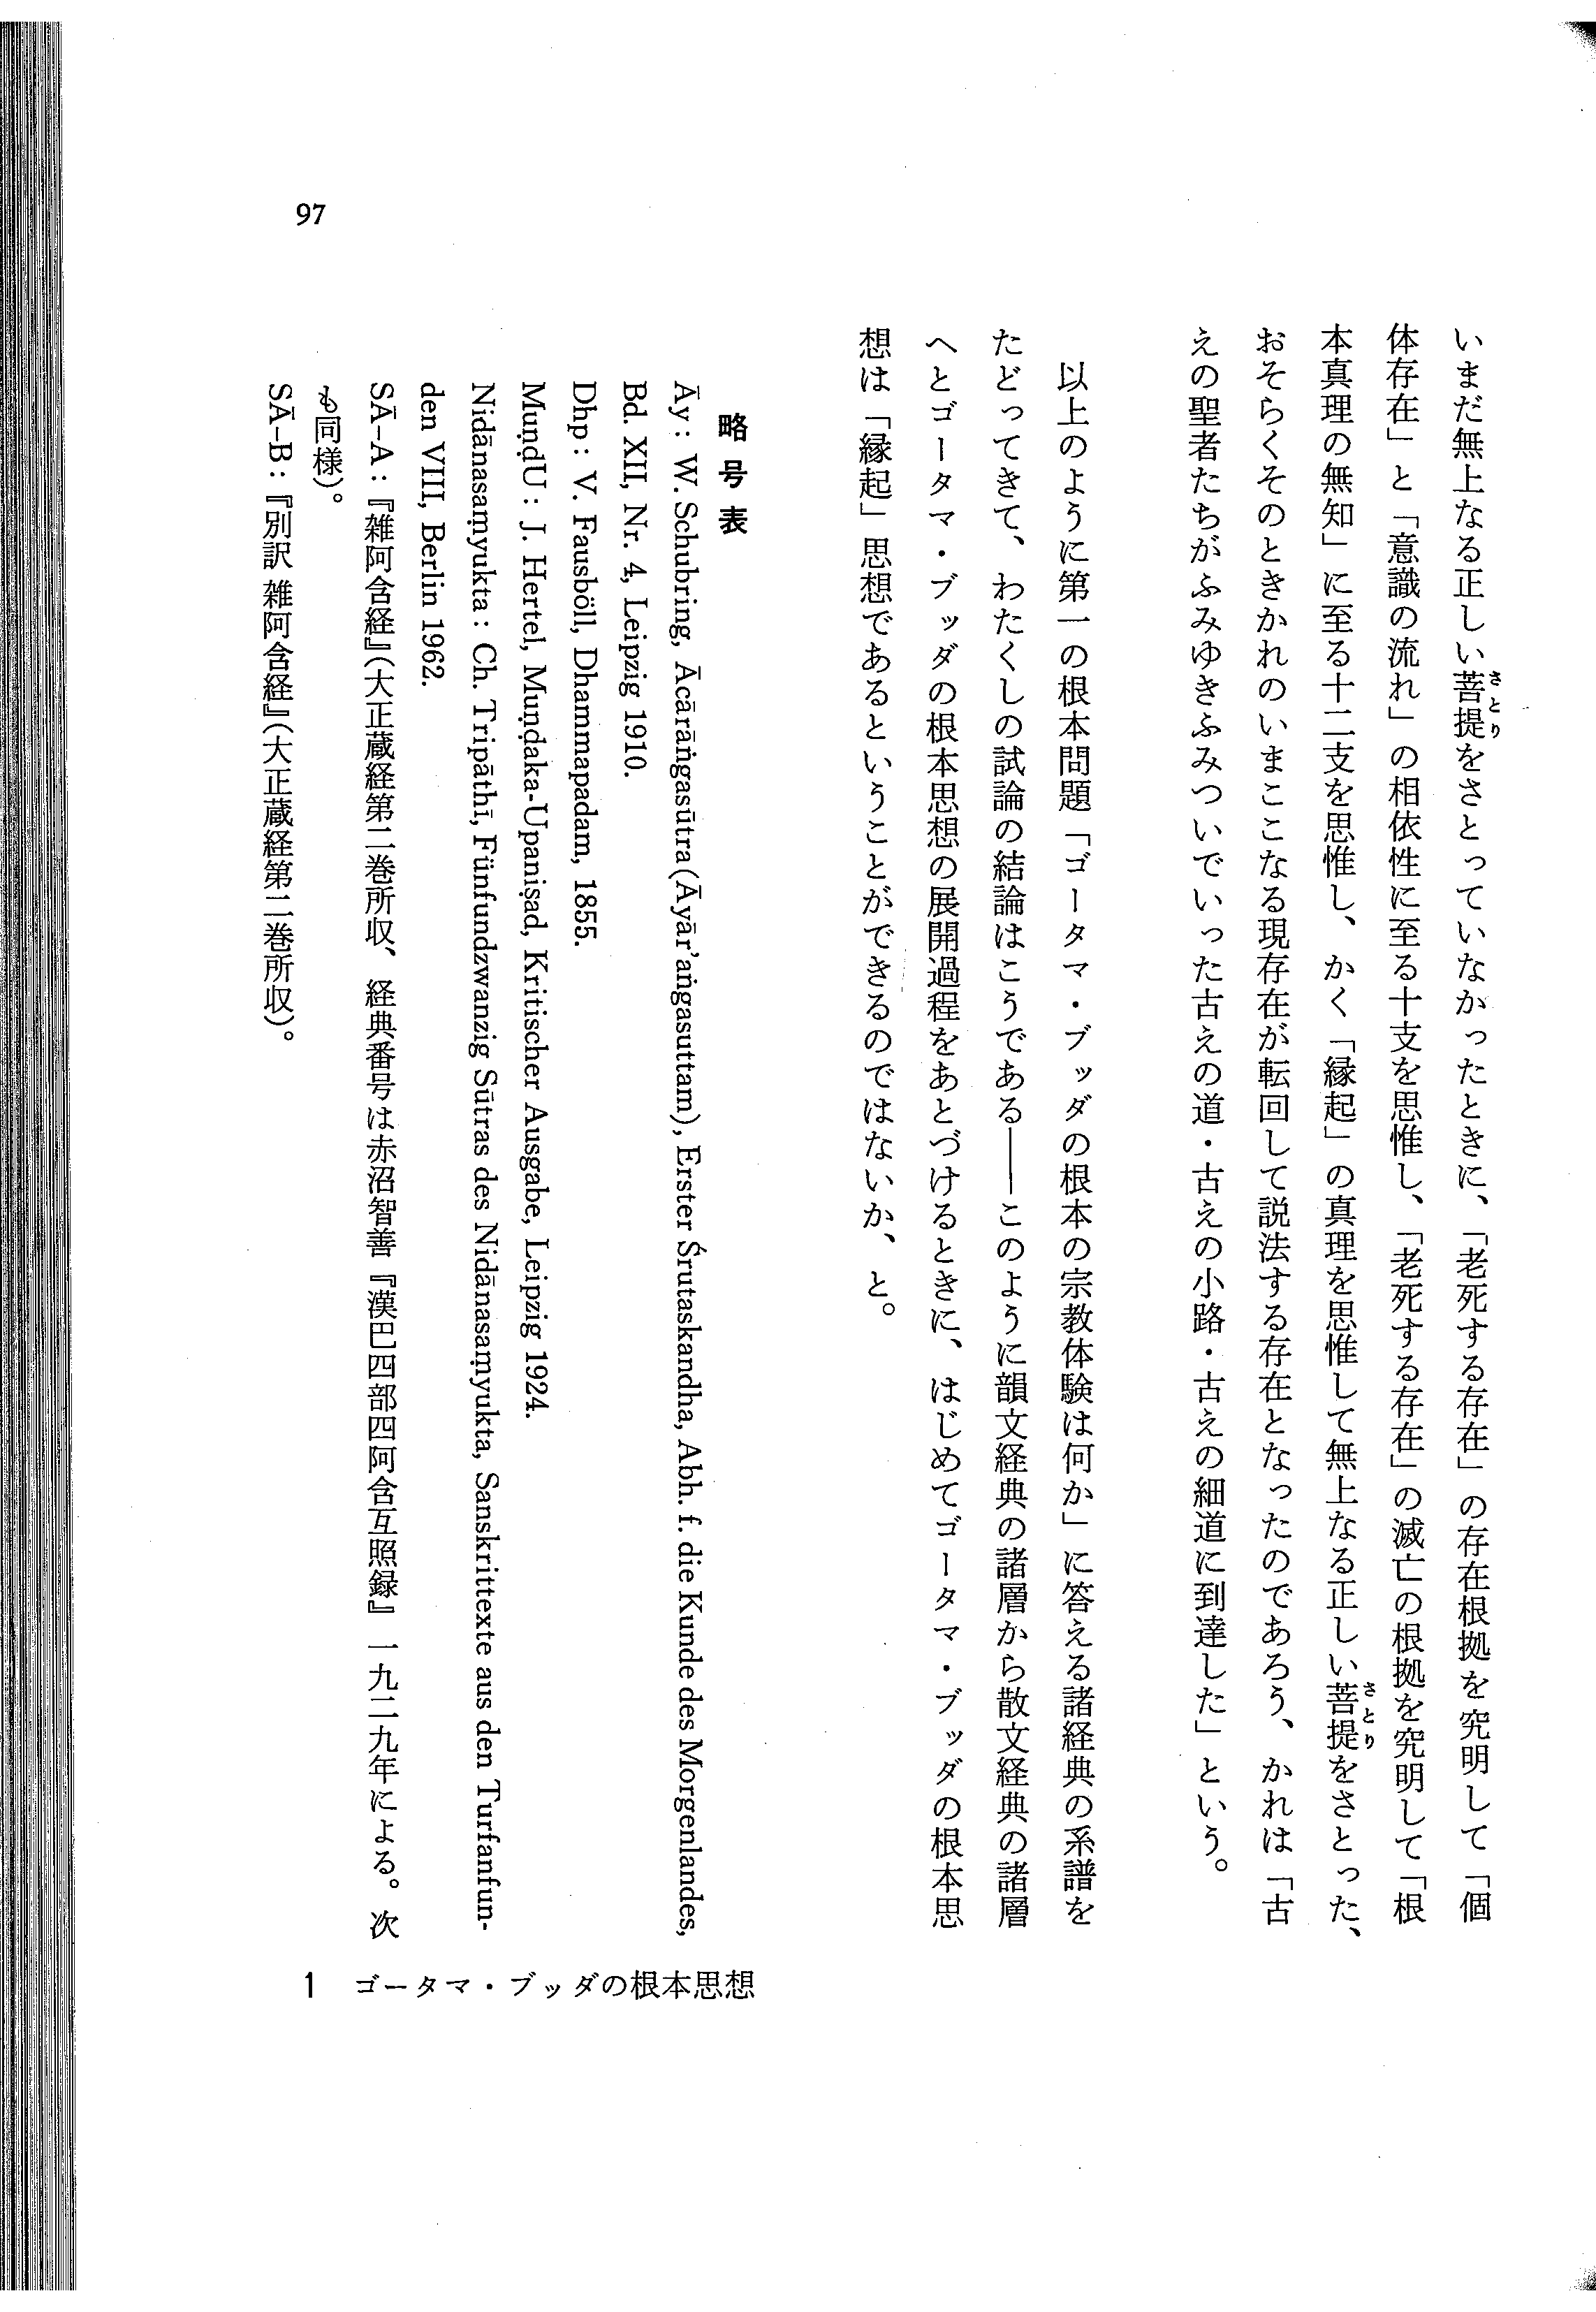 いまだ無上なる正しい菩提をさとっていなかったときに、「老死する存在」の存在根拠を究明して「個
体存在」と「意識の流れ」の相依性に至る十支を思惟し、「老死する存在」の滅亡の根拠を究明して「根
本真理の無知」に至る十二支を思惟し、かく「縁起」の真理を思惟して無上なる正しい菩提をさとった、
おそらくそのときかれのいまここなる現存在が転回して説法する存在となったのであろう、かれは「古
えの聖者たちがふみゆきふみついでいった古えの道・古えの小路・古えの細道に到達した」という。
以上のように第一の根本問題「ゴータマ・ブッダの根本の宗教体験は何か」に答える諸経典の系譜を
たどってきて、わたくしの試論の結論はこうである――このように韻文経典の諸層から散文経典の諸層
へとゴータマ・ブッダの根本思想の展開過程をあとづけるときに、はじめてゴータマ・ブッダの根本思
想は「縁起」思想であるということができるのではないか、と。
略号表
Āy : W. Schubring, Ācārāṅgasūtra (Āyār'aṅgasuttam), Erster Śrutaskandha, Abh. f. die Kunde des Morgenlandes,
Bd. XII, Nr. 4, Leipzig 1910.
Dhp : V. Fausböll, Dhammapadam, 1855.
MuṇḍU : J. Hertel, Muṇḍaka-Upaniṣad, Kritischer Ausgabe, Leipzig 1924.
Nidānasaṃyukta : Ch. Tripāthī, Fünfundzwanzig Sūtras des Nidānasaṃyukta, Sanskrittexte aus den Turfanfun-
den VIII, Berlin 1962.
SĀ-A : 『雑阿含経』(大正蔵経第二巻所収、経典番号は赤沼智善『漢巴四部四阿含互照録』一九二九年による。次
も同様)。
SĀ-B : 『別訳 雑阿含経』(大正蔵経第二巻所収)。
1 ゴータマ・ブッダの根本思想
97